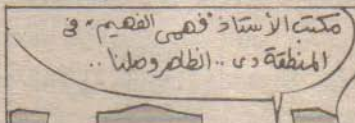 مكتب الأستاذ "فهمى الفهيم" فى
المنطقة دى .. الظاهر وصلنا ..